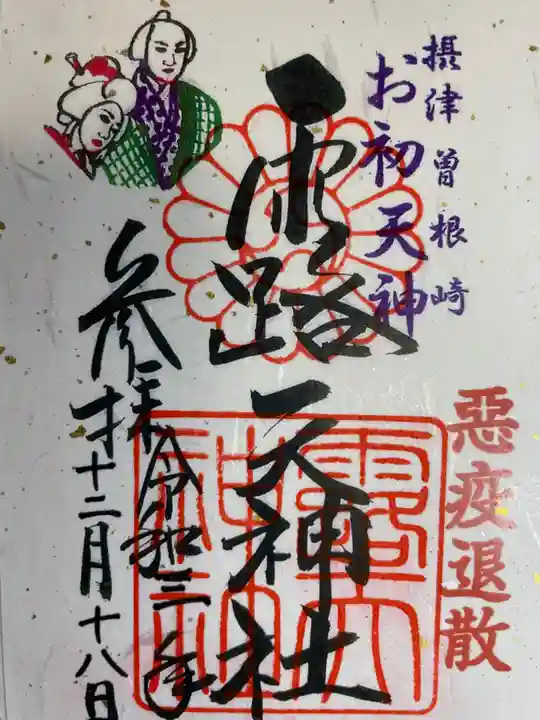 摂津曽根崎
お初天神
惡疫退散
露天神社
参拝
令和三年
十二月十八日